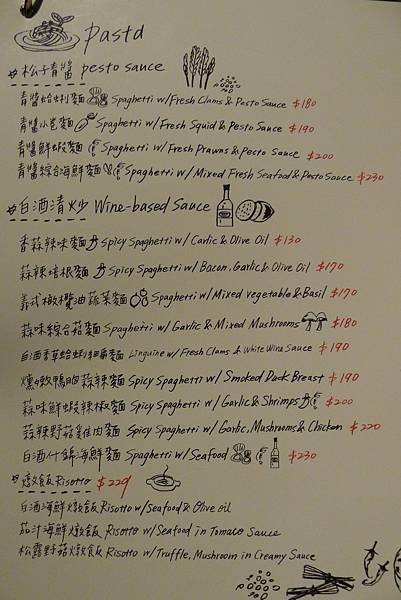 pasta
松子青醬 pesto sauce
青醬蛤蜊麵 Spaghetti w/Fresh Clams & Pesto Sauce $180
青醬小卷麵 Spaghetti w/ Fresh Squid & Pesto Sauce $190
青醬鮮蝦麵 Spaghetti w/ Fresh Prawns & Pesto Sauce $200
青醬綜合海鮮麵 Spaghetti w/ Mixed Fresh Seafood & Pesto Sauce $230
白酒清炒 Wine-based Sauce
香蒜辣味麵 Spicy Spaghetti w/ Garlic & Olive Oil $130
蒜辣培根麵 Spicy Spaghetti w/ Bacon, Garlic & Olive Oil $170
義式橄欖油蔬菜麵 Spaghetti w/ Mixed Vegetable & Basil $170
蒜味綜合菇麵 Spaghetti w/ Garlic & Mixed Mushrooms $180
白酒香草蛤蜊細扁麵 Linguine w/ Fresh Clams & White Wine Sauce $190
燻嫩鴨胸蒜辣麵 Spicy Spaghetti w/ Smoked Duck Breast $190
蒜味鮮蝦辣椒麵 Spicy Spaghetti w/ Garlic & Shrimps $200
蒜辣野菇雞肉麵 Spicy Spaghetti w/ Garlic, Mushrooms & Chicken $220
白酒什錦海鮮麵 Spaghetti w/ Seafood $230
燉飯 Risotto $229
白酒海鮮燉飯 Risotto w/ Seafood & Olive oil
茄汁海鮮燉飯 Risotto w/ Seafood in Tomato Sauce
松露野菇燉飯 Risotto w/ Truffle, Mushroom in Creamy Sauce